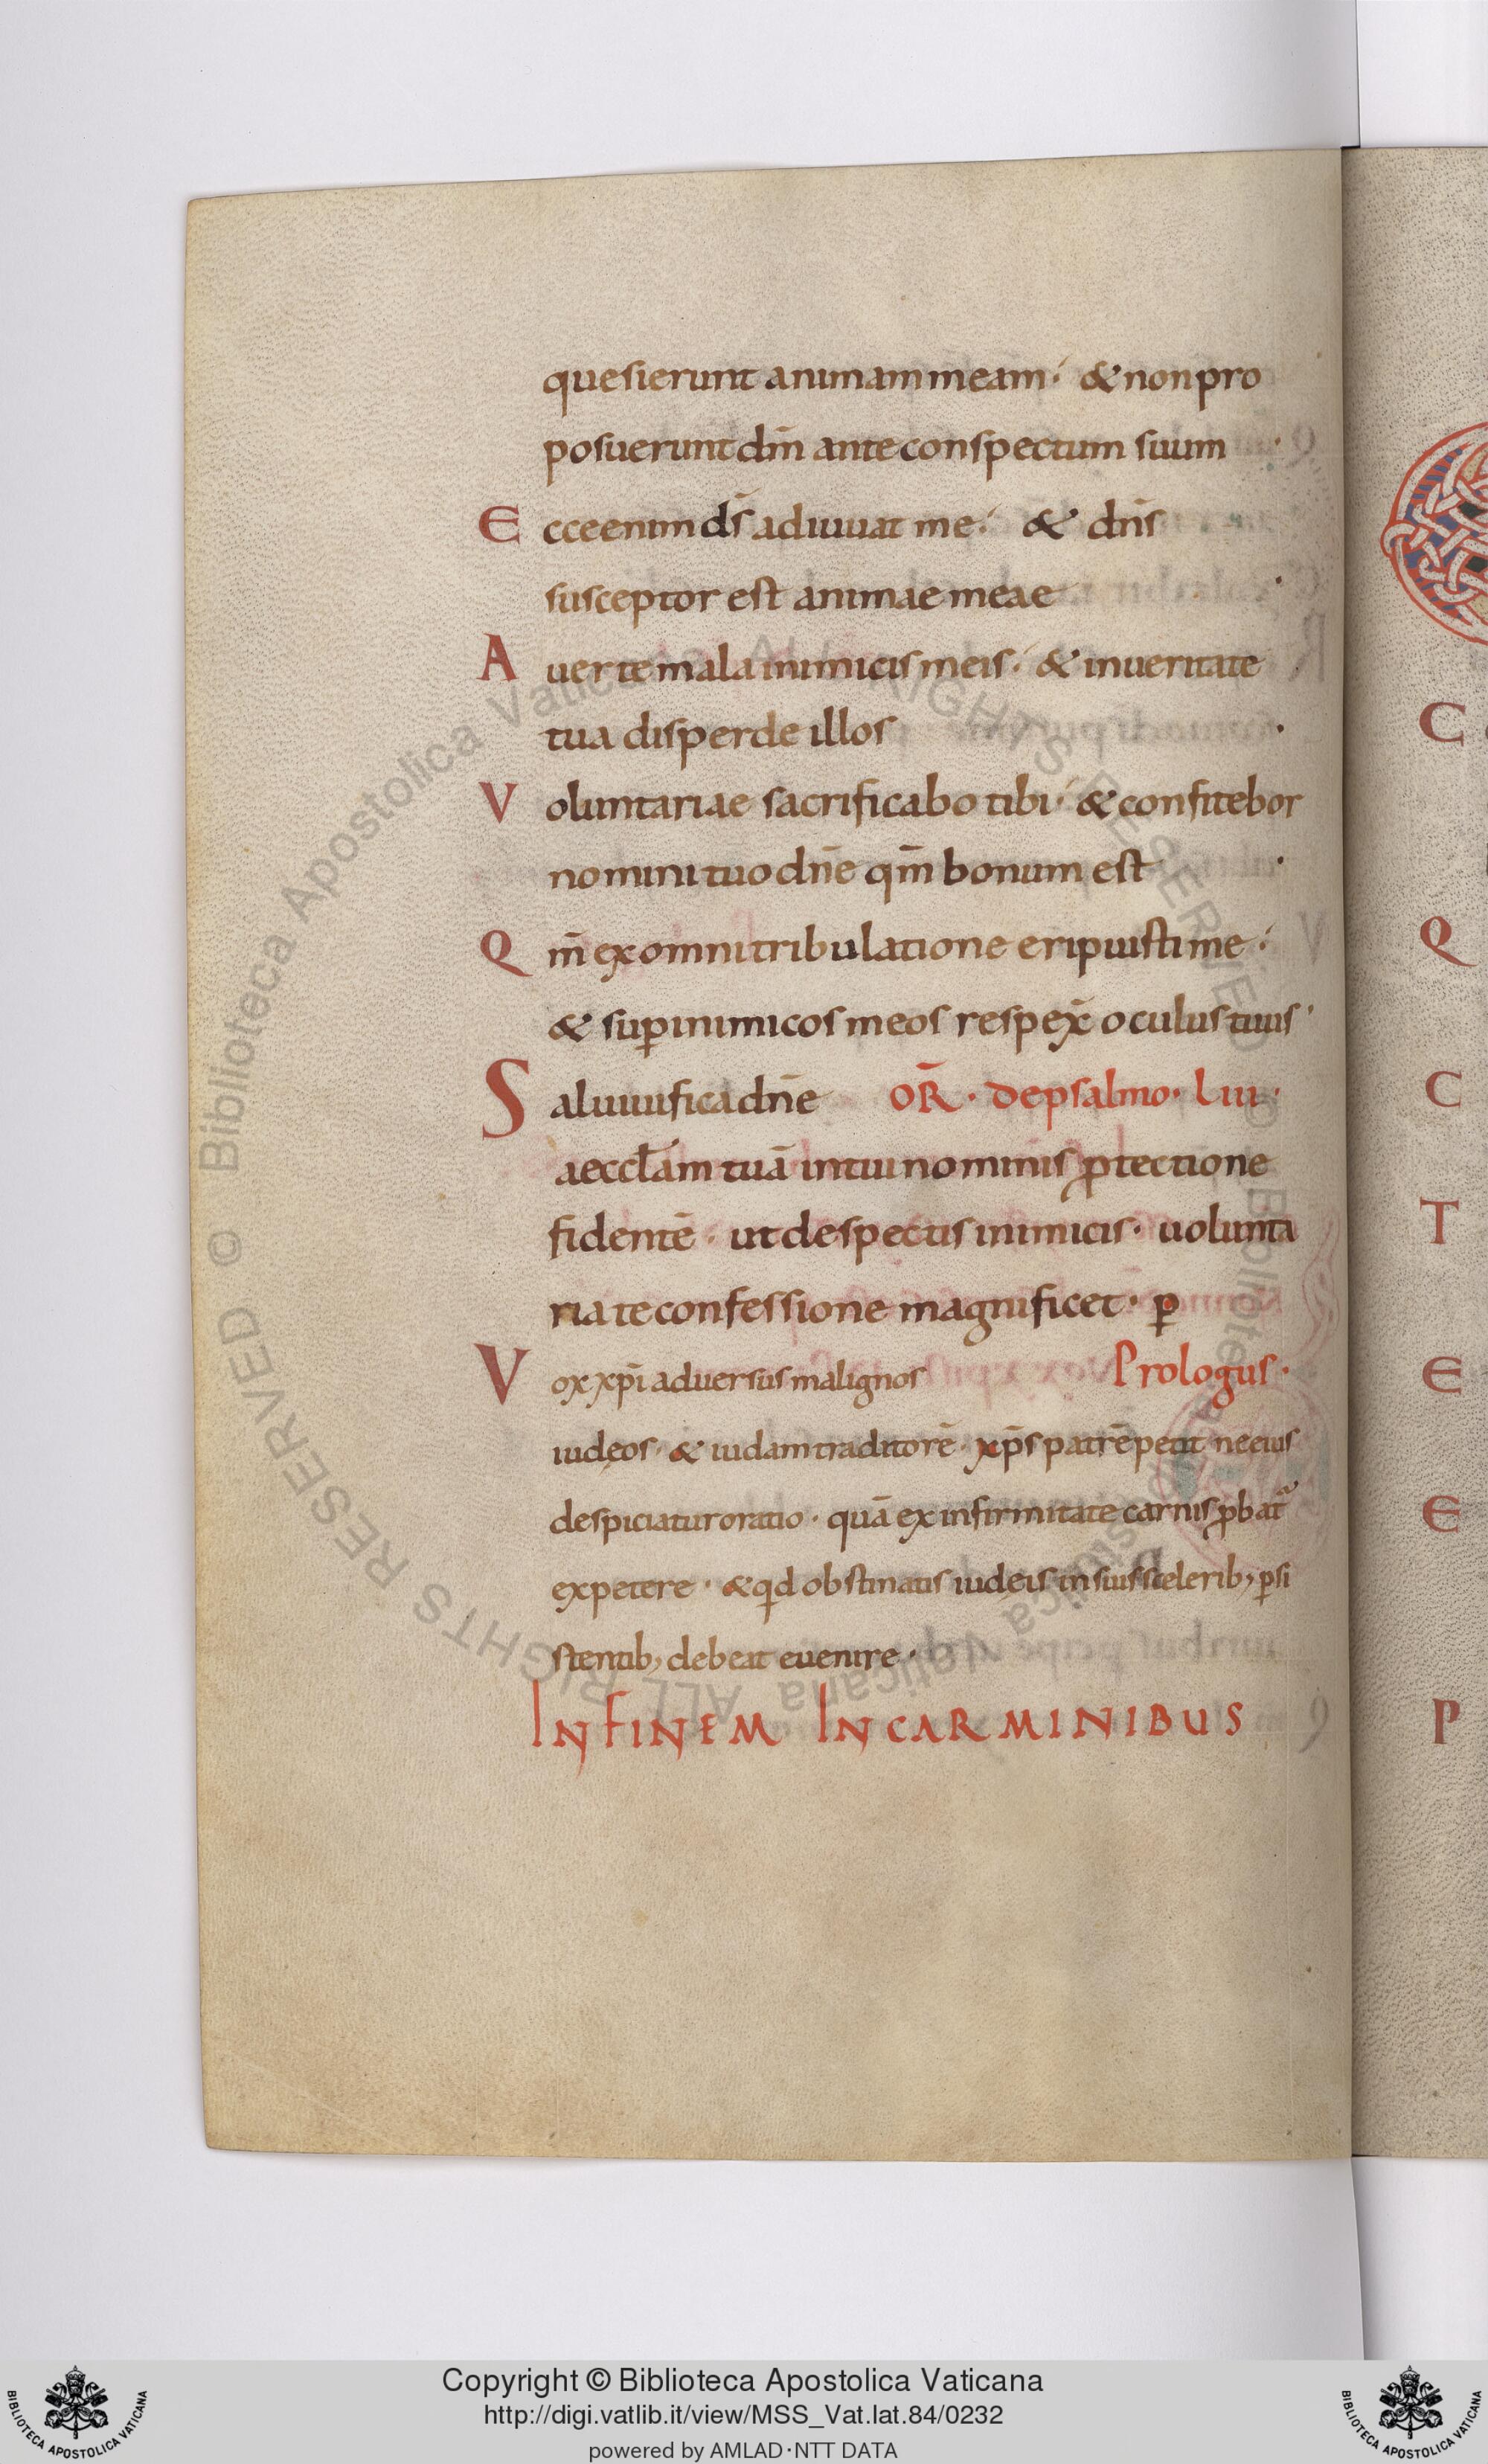 quesierunt animam meam · & non pro
posuerunt dm̄ ante conspectum suum
Ecce enim ds̄ adiuuat me · & dn̄s
susceptor est animae meae
Auerte mala inimicis meis · & in ueritate
tua disperde illos
Voluntariae sacrificabo tibi · & confitebor
nomini tuo dn̄e qm̄ bonum est
Qm̄ ex omni tribulatione eripuisti me ·
& sup̄ inimicos meos respex̄ oculus tuus
Saluiuifica dn̄e OR̄ · de psalmo · Liii ·
aeccl̄am tuā in tui nominis ꝓtectione
fidentē · ut despectis inimicis · uolunta
ria te confessione magnificet · p̄
Vox xp̄i aduersus malignos Prologus ·
iudęos · & iudam traditorē · xp̄s patrē petit ne eius
despiciatur oratio · quā ex infirmitate carnis ꝓbat᷑
expetere · & qd obstinatis iudęis in suis scelerib; ꝑsi
stentib; debeat euenire ·
IN FINEM IN CARMINIBUS
C
Q
C
T
E
E
P
Biblioteca Apostolica Vaticana ALL RIGHTS RESERVED ©
Copyright © Biblioteca Apostolica Vaticana
http://digi.vatlib.it/view/MSS_Vat.lat.84/0232
powered by AMLAD·NTT DATA
BIBLIOTECA APOSTOLICA VATICANA
BIBLIOTECA APOSTOLICA VATICANA